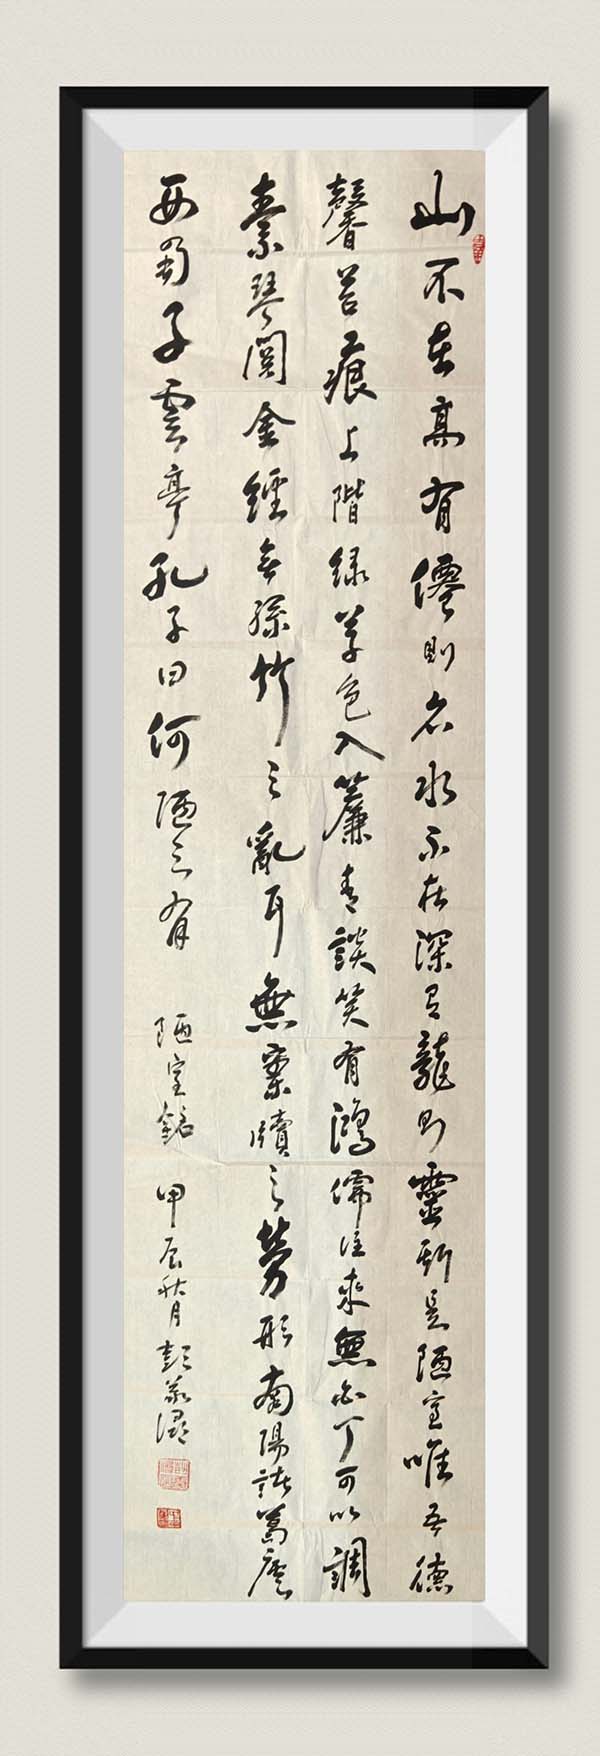 山不在高有僊則名水不在深有龍則靈斯是陋室唯吾德
馨苔痕上階綠草色入簾青談笑有鴻儒往來無白丁可以調
素琴閱金經無絲竹之亂耳無案牘之勞形南陽諸葛廬
西蜀子雲亭孔子曰何陋之有 陋室銘 甲辰秋月彭